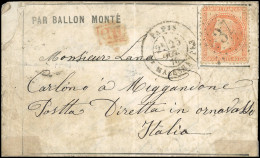 PAR BALLON MONTÉ
PARIS
Monsieur Lana
Carlono à Miggandone
Postta Diretta in ornavasso
Italia